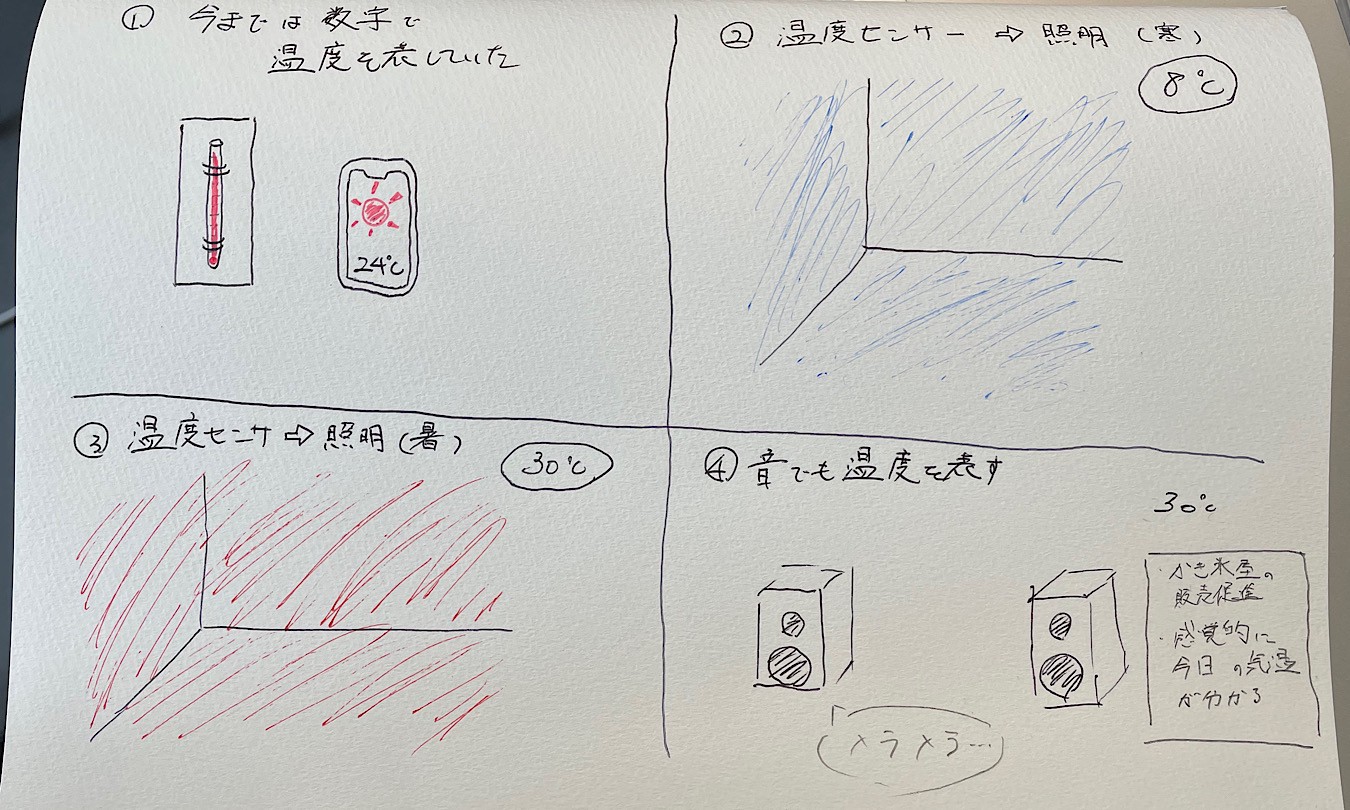 ① 今までは数字で
温度を表していた
24℃
② 温度センサー ⇨ 照明 (寒)
8℃
③ 温度センサ ⇨ 照明 (暑)
30℃
④ 音でも温度を表す
30℃
メラメラ…
・かき氷屋の
販売促進
・感覚的に
今日の気温
が分かる